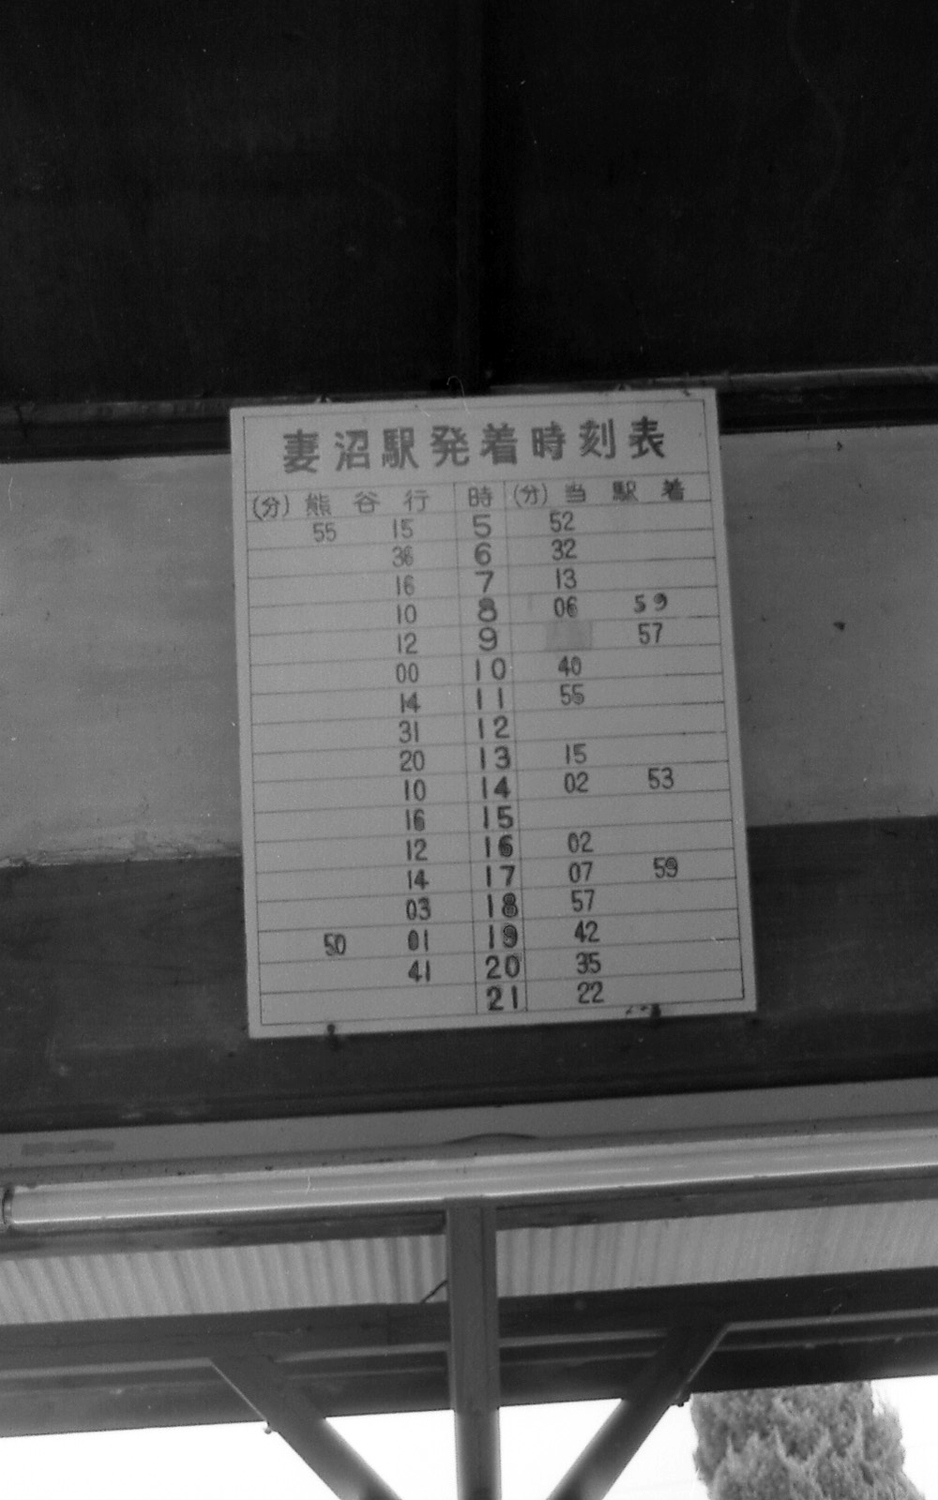 妻沼駅発着時刻表
(分) 熊谷行 時 (分) 当駅着
55 15 5 52
36 6 32
16 7 13
10 8 06 59
12 9 57
00 10 40
14 11 55
31 12
20 13 15
10 14 02 53
16 15
12 16 02
14 17 07 59
03 18 57
50 01 19 42
41 20 35
21 22